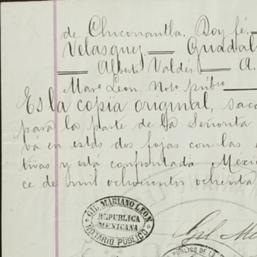 de Chiconautla, Doy fé.
Velasquez Guadal
Alberto Valdés A.
Marº Leon, Not. púbco
Es la copia original, saca
para la parte de la Señorita
vá en estas dos fojas con las
tivas y está confrontada Mexi
ce de mil ochocientos ochenta
GIL MARIANO LEON
REPUBLICA
MEXICANA
NOTARIO PUBLICO
Gil M
PUBLICO DE LA